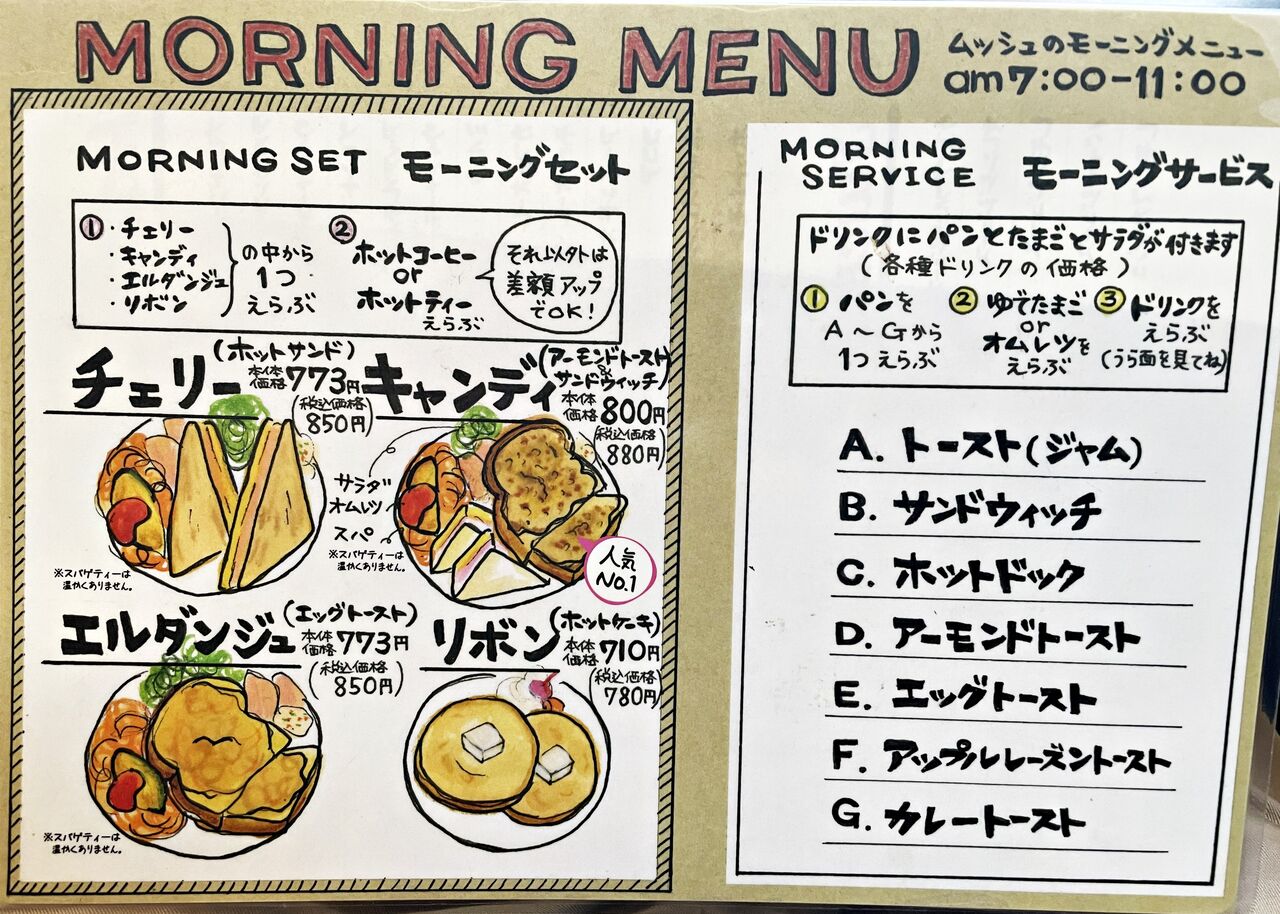 MORNING MENU
ムッシュのモーニングメニュー
am7:00-11:00
MORNING SET モーニングセット
① ・チェリー
・キャンディ
・エルダンジュ
・リボン
の中から
1つ
えらぶ
②
ホットコーヒー
or
ホットティー
えらぶ
それ以外は
差額アップ
でOK!
チェリー
(ホットサンド)
本体価格773円
(税込価格)
850円
キャンディ
(アーモンドトースト
&
サンドウィッチ)
本体価格800円
(税込価格)
880円
サラダ
オムレツ
スパ
※スパゲティーは
温かくありません。
※スパゲティーは
温かくありません。
人気
No.1
エルダンジュ
(エッグトースト)
本体価格773円
(税込価格)
850円
※スパゲティーは
温かくありません。
リボン
(ホットケーキ)
本体価格710円
(税込価格)
780円
MORNING
SERVICE
モーニングサービス
ドリンクにパンとたまごとサラダが付きます
(各種ドリンクの価格)
① パンを
A〜Gから
1つえらぶ
② ゆでたまご
or
オムレツを
えらぶ
③ ドリンクを
えらぶ
(うら面を見てね)
A. トースト(ジャム)
B. サンドウィッチ
C. ホットドック
D. アーモンドトースト
E. エッグトースト
F. アップルレーズントースト
G. カレートースト